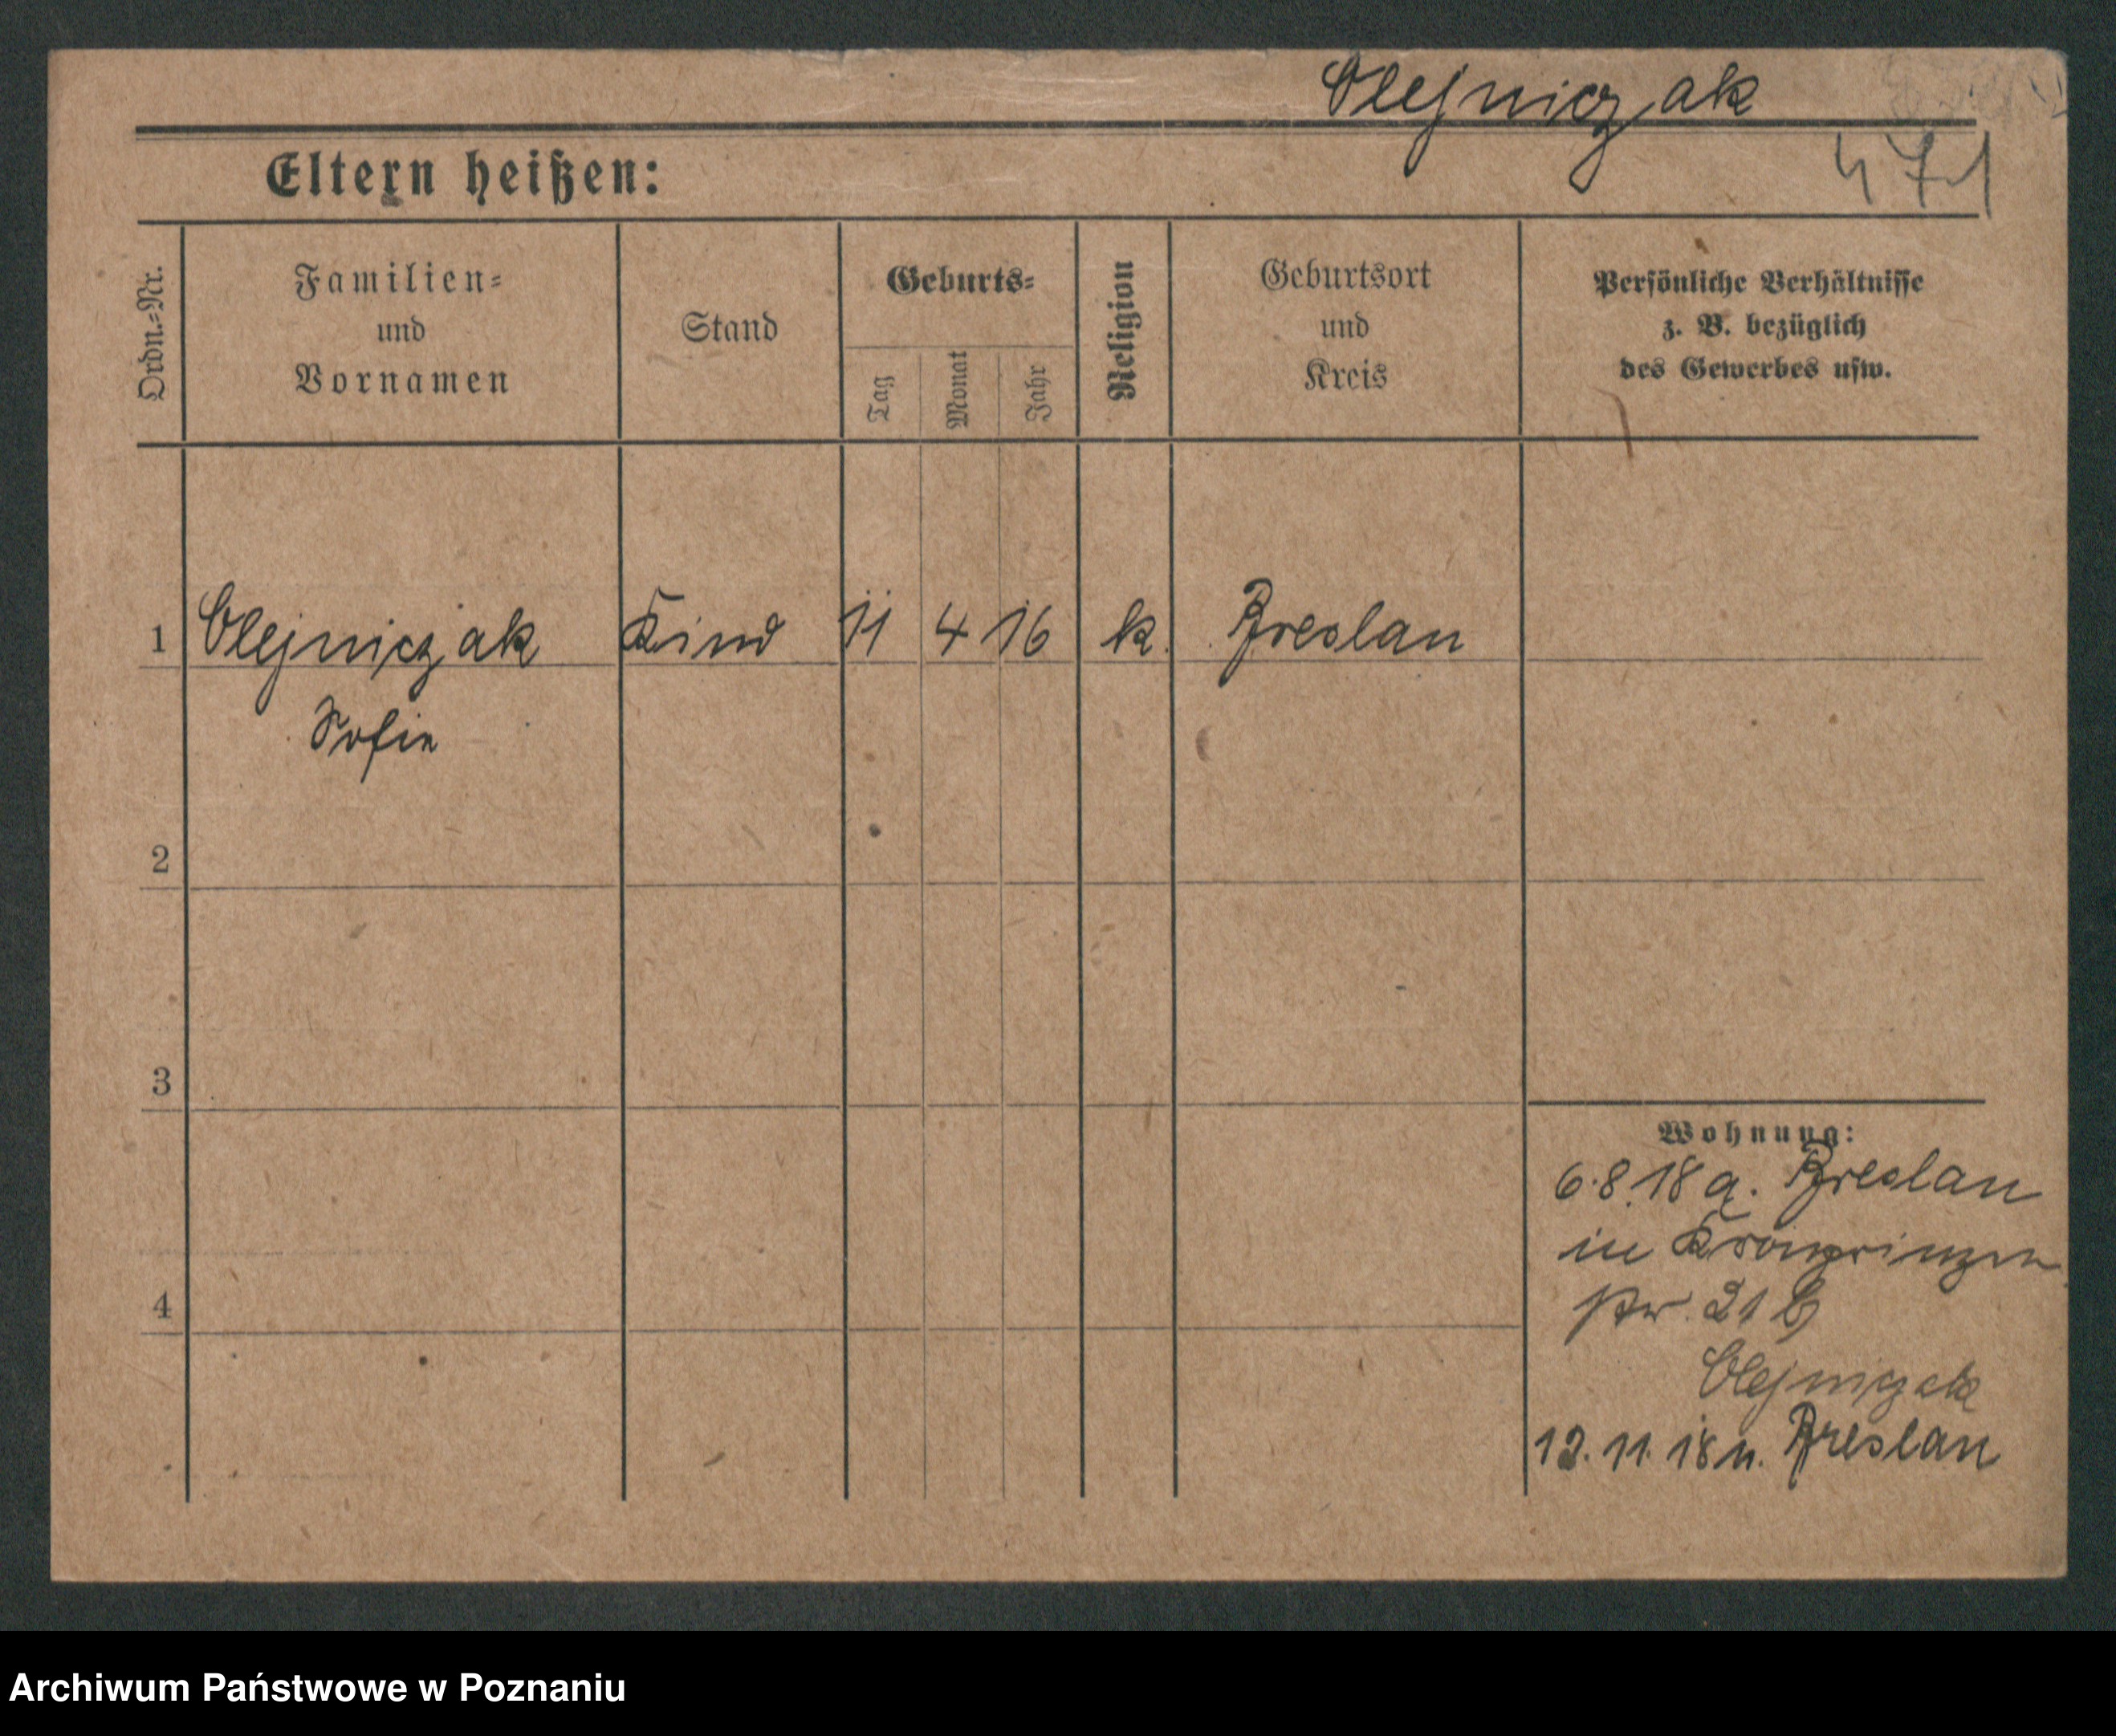 Olejniczak
471
Eltern heißen:
Ordn.-Nr.
Familien-
und
Vornamen
Stand
Geburts-
Tag
Monat
Jahr
Religion
Geburtsort
und
Kreis
Persönliche Verhältnisse
z. B. bezüglich
des Gewerbes usw.
1 Olejniczak Kind 11 4 16 k. Breslau
Sofie
2
3
4
Wohnung:
6.8.18 a. Breslau
in Kronprinzen
str. 21 b
Olejniczak
12.11.18 n. Breslau
Archiwum Państwowe w Poznaniu